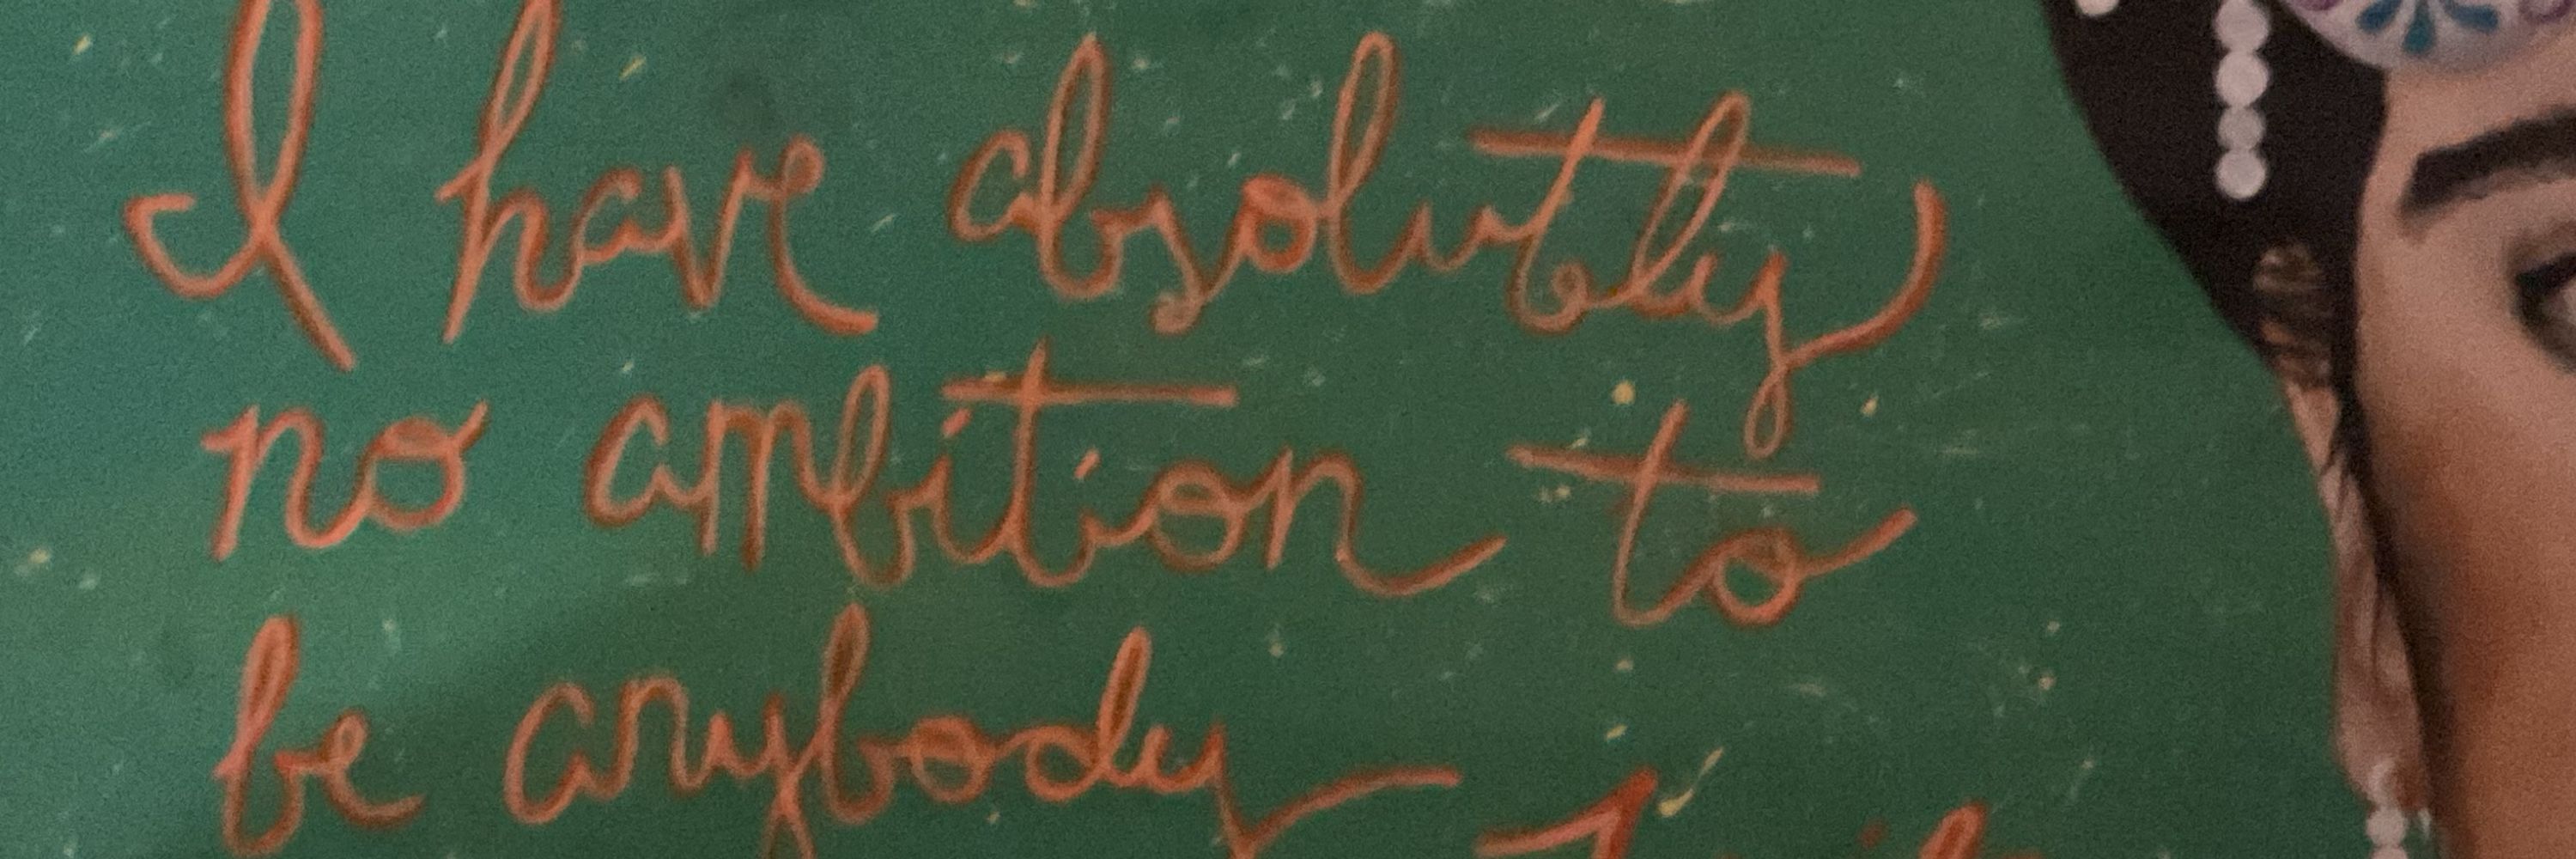 I have absolutely
no ambition to
be anybody